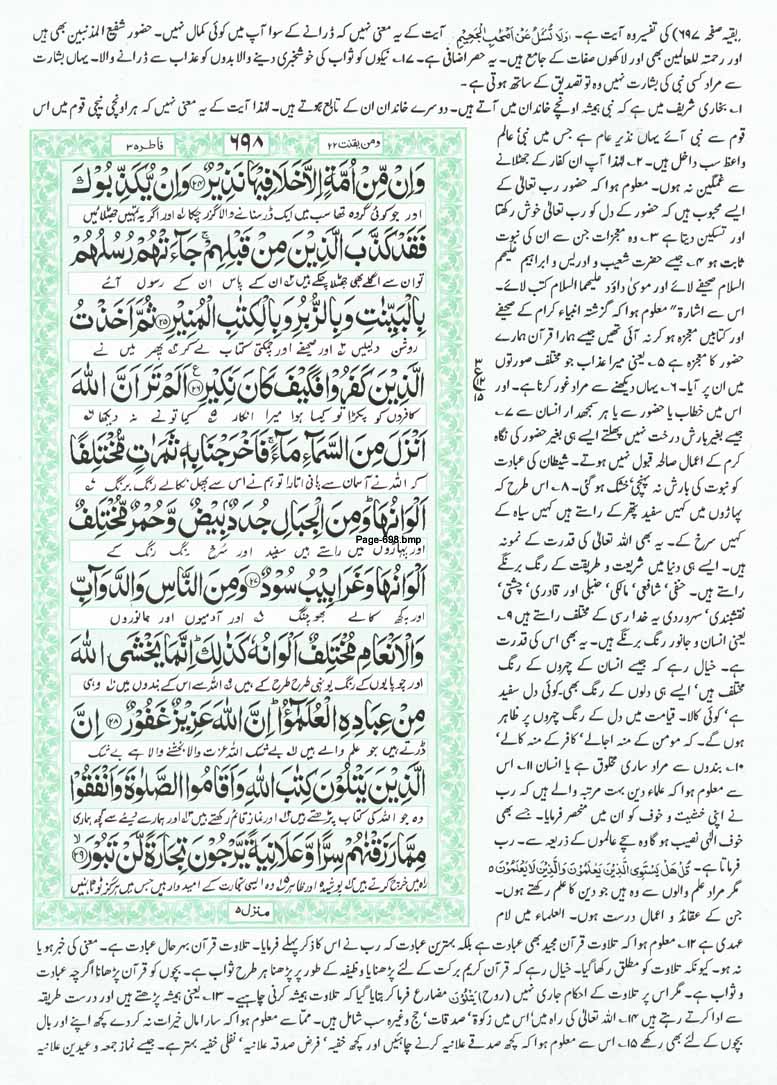 بقیہ صفحہ ۶۹۷) کی تفسیر وہ آیت ہے۔ وَلَا تُسْئَلُ عَنْ اَصْحٰبِ الْجَحِیْمِ آیت کے یہ معنی نہیں کہ ڈرانے کے سوا آپ میں کوئی کمال نہیں۔ حضور شفیع المذنبین بھی ہیں
اور رحمتہ للعالمین بھی اور لاکھوں صفات کے جامع ہیں۔ یہ حصر اضافی ہے۔ ۱۷۔ نیکوں کو ثواب کی خوشخبری دینے والا بدوں کو عذاب سے ڈرانے والا۔ یہاں بشارت
سے مراد کسی نبی کی بشارت نہیں وہ تو تصدیق کے ساتھ ہوتی ہے۔
۱۔ بخاری شریف میں ہے کہ نبی ہمیشہ اونچے خاندان میں آتے ہیں۔ دوسرے خاندان ان کے تابع ہوتے ہیں۔ لہٰذا آیت کے یہ معنی نہیں کہ ہر اونچی نیچی قوم میں اس
قوم سے نبی آئے یہاں نذیر عام ہے جس میں نبی عالم
واعظ سب داخل ہیں۔ ۲۔ لہٰذا آپ ان کفار کے جھٹلانے
سے غمگین نہ ہوں۔ معلوم ہوا کہ حضور رب تعالٰی کے
ایسے محبوب ہیں کہ حضور کے دل کو رب تعالٰی خوش رکھتا
اور تسکین دیتا ہے ۳۔ وہ معجزات جن سے ان کی نبوت
ثابت ہو ۴۔ جیسے حضرت شعیب و ادریس و ابراہیم علیہم
السلام صحیفے لائے اور موسیٰ داؤد علیہما السلام کتب لائے۔
اس سے اشارۃً معلوم ہوا کہ گزشتہ انبیاء کرام کے صحیفے
اور کتابیں معجزہ ہو کر نہ آئی تھیں جیسے ہمارا قرآن ہمارے
حضور کا معجزہ ہے ۵۔ یعنی میرا عذاب جو مختلف صورتوں
میں ان پر آیا۔ ۶۔ یہاں دیکھنے سے مراد غور کرنا ہے۔ اور
اس میں خطاب یا حضور سے یا ہر سمجھدار انسان سے ۷۔
جیسے بغیر بارش درخت نہیں پھلتے ایسے ہی بغیر حضور کی نگاہ
کرم کے اعمال صالحہ قبول نہیں ہوتے۔ شیطان کی عبادت
کو نبوت کی بارش نہ پہنچی خشک ہو گئی۔ ۸۔ اس طرح کہ
پہاڑوں میں کہیں سفید پتھر کے راستے ہیں کہیں سیاہ کے
کہیں سرخ کے۔ یہ بھی اللہ تعالٰی کی قدرت کے نمونہ
ہیں۔ ایسے ہی دنیا میں شریعت و طریقت کے رنگ برنگے
راستے ہیں۔ حنفی‘ شافعی‘ مالکی‘ حنبلی اور قادری‘ چشتی‘
نقشبندی‘ سہروردی یہ خدا رسی کے مختلف راستے ہیں ۹۔
یعنی انسان و جانور رنگ برنگے ہیں۔ یہ بھی اس کی قدرت
ہے۔ خیال رہے کہ جیسے انسان کے چہروں کے رنگ
مختلف ہیں‘ ایسے ہی دلوں کے رنگ بھی۔ کوئی دل سفید
ہے‘ کوئی کالا۔ قیامت میں دل کے رنگ چہروں پر ظاہر
ہوں گے۔ کہ مومن کے منہ اجالے‘ کافر کے منہ کالے‘
۱۰۔ بندوں سے مراد ساری مخلوق ہے یا انسان ۱۱۔ اس
سے معلوم ہوا کہ علماء دین بہت مرتبہ والے ہیں کہ رب
نے اپنی خشیت و خوف کو ان میں منحصر فرمایا۔ جسے بھی
خوف الٰہی نصیب ہو گا وہ سچے عالموں کے ذریعہ سے۔ رب
فرماتا ہے۔ قُلْ هَلْ یَسْتَوِی الَّذِیْنَ یَعْلَمُوْنَ وَالَّذِیْنَ لَا یَعْلَمُوْنَ ۵
مگر مراد علم والوں سے وہ ہیں جو دین کا علم رکھتے ہوں۔
جن کے عقائد و اعمال درست ہوں۔ العلماء میں لام
ومن یقنت ۲۲ ۶۹۸ فاطر ۳۵
وَاِنْ مِّنْ اُمَّةٍ اِلَّا خَلَا فِیْهَا نَذِیْرٌ ﴿۲۴﴾ وَاِنْ یُّكَذِّبُوْكَ
اور جو کوئی گروہ تھا سب میں ایک ڈر سنانے والا گزر چکا اور اگر یہ تمہیں جھٹلائیں
فَقَدْ كَذَّبَ الَّذِیْنَ مِنْ قَبْلِهِمْ ۚ جَآءَتْهُمْ رُسُلُهُمْ
تو ان سے اگلے بھی جھٹلا چکے ہیں ان کے پاس ان کے رسول آئے
بِالْبَیِّنٰتِ وَبِالزُّبُرِ وَبِالْكِتٰبِ الْمُنِیْرِ ﴿۲۵﴾ ثُمَّ اَخَذْتُ
روشن دلیلیں اور صحیفے اور چمکتی کتاب لے کر پھر میں نے
الَّذِیْنَ كَفَرُوْا فَكَیْفَ كَانَ نَكِیْرِ ﴿۲۶﴾ اَلَمْ تَرَ اَنَّ اللّٰهَ
کافروں کو پکڑا تو کیسا ہوا میرا انکار کیا تو نے نہ دیکھا
اَنْزَلَ مِنَ السَّمَآءِ مَآءً ۚ فَاَخْرَجْنَا بِهٖ ثَمَرٰتٍ مُّخْتَلِفًا
کہ اللہ نے آسمان سے پانی اتارا تو ہم نے اس سے پھل نکالے رنگ برنگ
اَلْوَانُهَا ؕ وَمِنَ الْجِبَالِ جُدَدٌۢ بِیْضٌ وَّحُمْرٌ مُّخْتَلِفٌ
اور پہاڑوں میں راستے ہیں سفید اور سرخ رنگ رنگ کے
Page-698.bmp
اَلْوَانُهَا وَغَرَابِیْبُ سُوْدٌ ﴿۲۷﴾ وَمِنَ النَّاسِ وَالدَّوَآبِّ
اور کچھ کالے بھوجنگ اور آدمیوں اور جانوروں
وَالْاَنْعَامِ مُخْتَلِفٌ اَلْوَانُهٗ كَذٰلِكَ ؕ اِنَّمَا یَخْشَی اللّٰهَ
اور چوپایوں کے رنگ یونہی طرح طرح کے ہیں اللہ سے اس کے بندوں میں وہی
مِنْ عِبَادِهِ الْعُلَمٰٓؤُا ؕ اِنَّ اللّٰهَ عَزِیْزٌ غَفُوْرٌ ﴿۲۸﴾ اِنَّ
ڈرتے ہیں جو علم والے ہیں بے شک اللہ عزت والا بخشنے والا ہے بے شک
الَّذِیْنَ یَتْلُوْنَ كِتٰبَ اللّٰهِ وَاَقَامُوا الصَّلٰوةَ وَاَنْفَقُوْا
وہ جو اللہ کی کتاب پڑھتے ہیں اور نماز قائم رکھتے ہیں اور ہمارے دیئے سے کچھ ہماری
مِمَّا رَزَقْنٰهُمْ سِرًّا وَّعَلَانِیَةً یَّرْجُوْنَ تِجَارَةً لَّنْ تَبُوْرَ ﴿۲۹﴾
راہ میں خرچ کرتے ہیں پوشیدہ اور ظاہر وہ ایسی تجارت کے امیدوار ہیں جس میں ہرگز ٹوٹا نہیں
منزل ۵
عہدی ہے ۱۲۔ معلوم ہوا کہ تلاوت قرآن مجید بھی عبادت ہے بلکہ بہترین عبادت کہ رب نے اس کا ذکر پہلے فرمایا۔ تلاوت قرآن بہر حال عبادت ہے۔ معنی کی خبر ہو یا
نہ ہو۔ کیونکہ تلاوت کو مطلق رکھا گیا۔ خیال رہے کہ قرآن کریم برکت کے لئے پڑھنا یا وظیفہ کے طور پر پڑھنا ہر طرح ثواب ہے۔ بچوں کو قرآن پڑھانا اگرچہ عبادت
و ثواب ہے۔ مگر اس پر تلاوت کے احکام جاری نہیں (روح) یَتْلُوْنَ مضارع فرما کر بتایا گیا کہ تلاوت ہمیشہ کرنی چاہیے۔ ۱۳۔ یعنی ہمیشہ پڑھتے ہیں اور درست طریقہ
سے ادا کرتے رہتے ہیں ۱۴۔ اللہ تعالٰی کی راہ میں‘ اس میں زکوۃ‘ صدقات‘ حج وغیرہ سب شامل ہیں۔ مما سے معلوم ہوا کہ سارا مال خیرات نہ کر دے کچھ اپنے اور بال
بچوں کے لئے بھی رکھے ۱۵۔ اس سے معلوم ہوا کہ کچھ صدقے علانیہ کرنے چاہئیں اور کچھ خفیہ‘ فرض صدقہ علانیہ‘ نفلی خفیہ بہتر ہے۔ جیسے نماز جمعہ و عیدین علانیہ